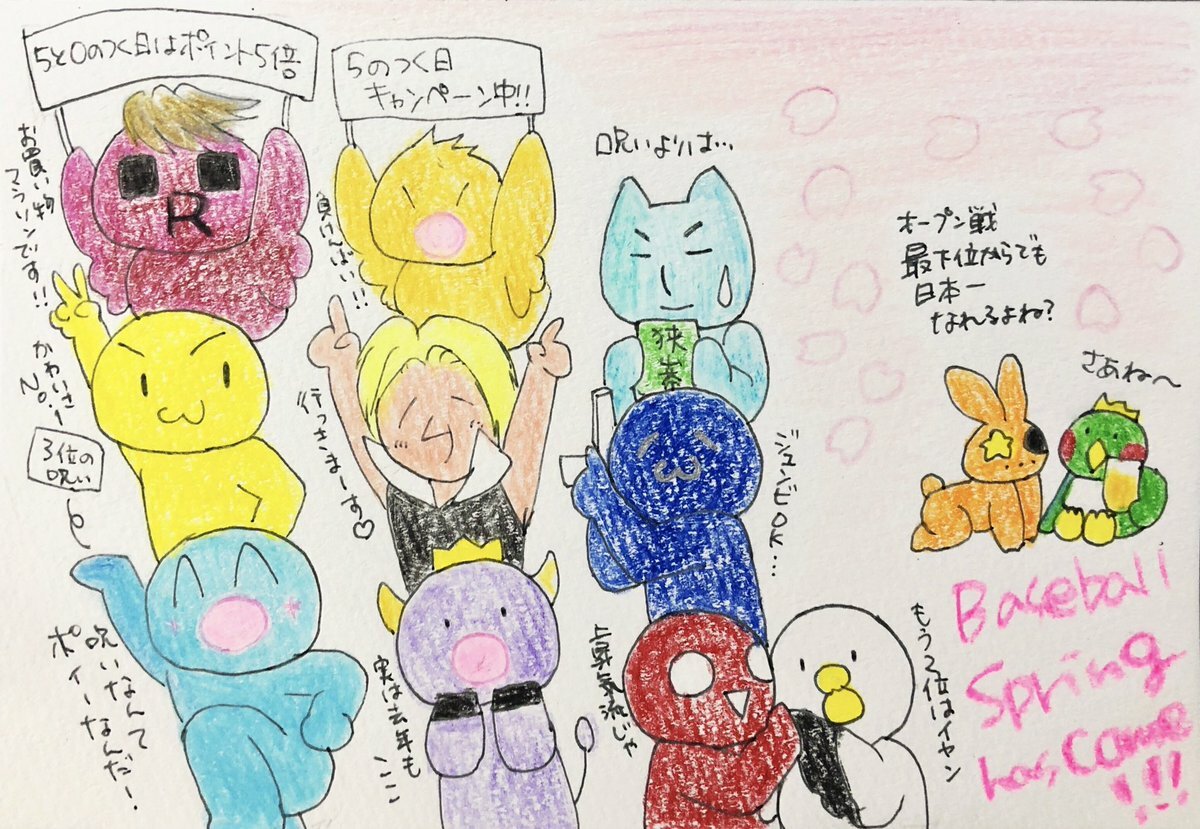 5と0のつく日はポイント5倍
5のつく日
キャンペーン中!!
お買い物
マラソンです!!
R
負けんばい!!
呪いよりは…
狭善
オープン戦
最下位からでも
日本一
なれるよね?
さあね〜
かわいさー
No.1
3位の
呪い
行っきまーす♡
ジュンビOK…
呪いなんて
ポイーなんだー
実は去年も
ここ
上昇気流じゃ
もう2位はイヤン
Baseball
Spring
has, Came
!!!